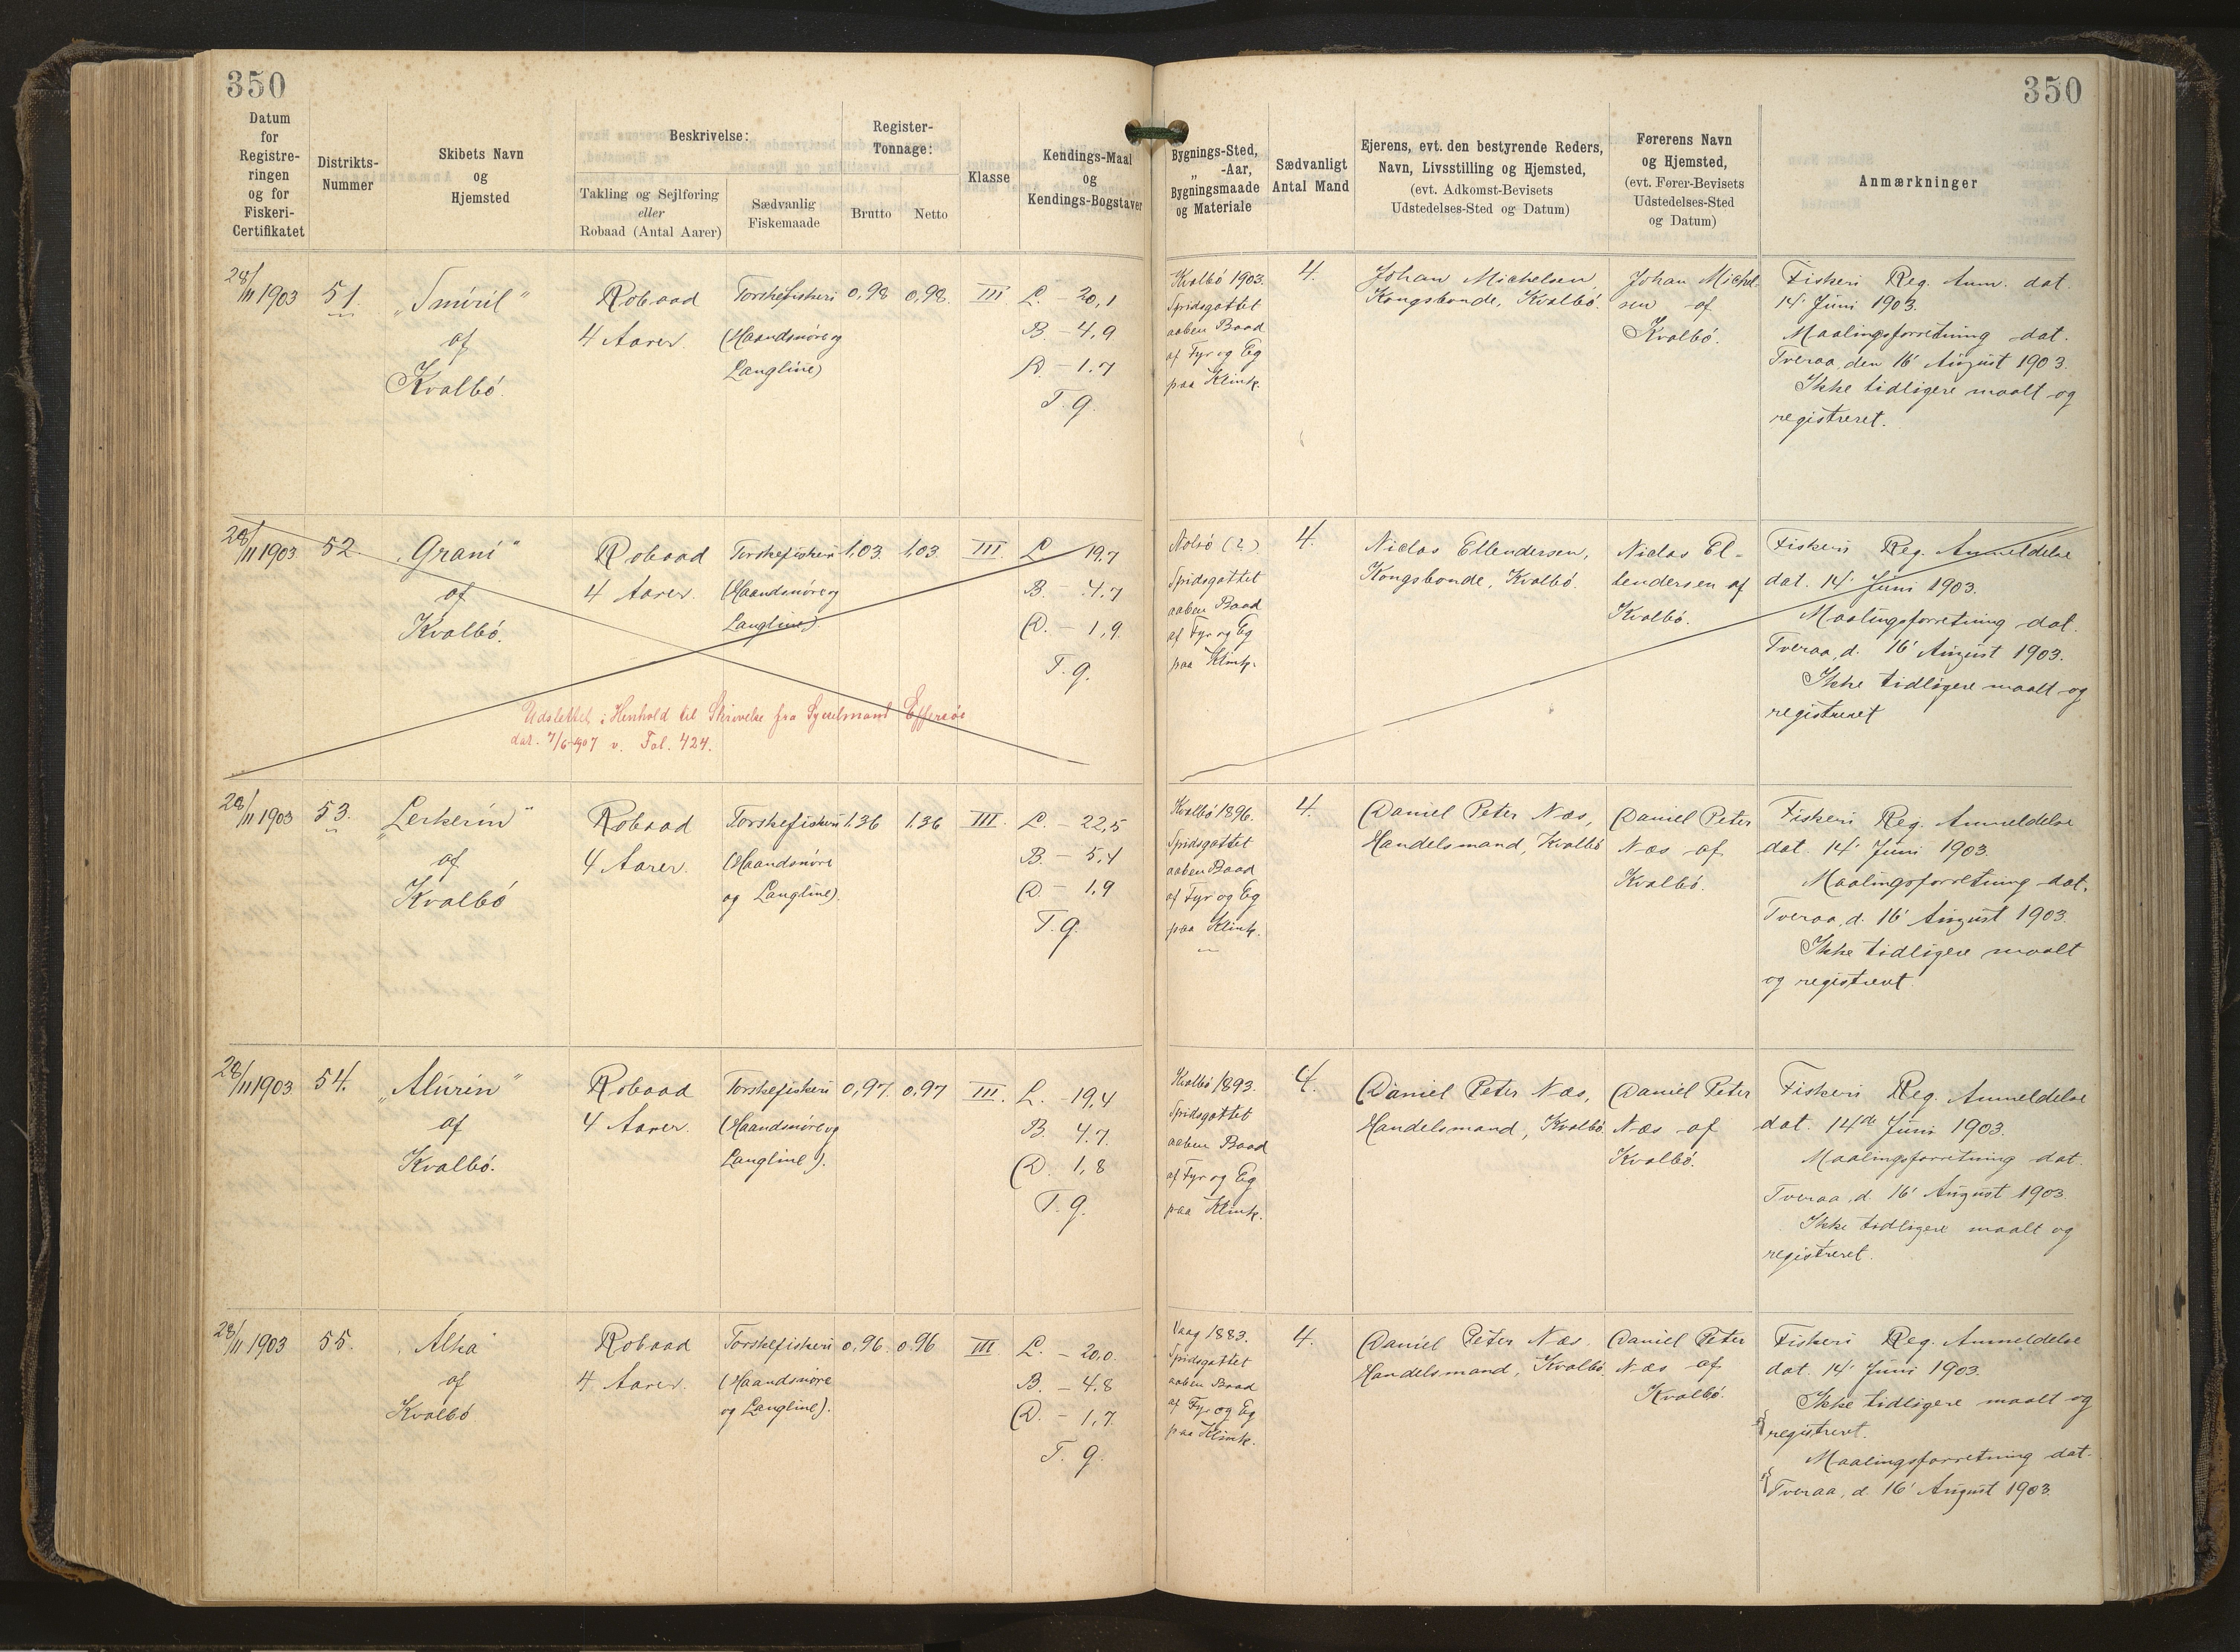 350
350
Datum
for
Registre-
ringen
og for
Fiskeri-
Certifikatet
Distrikts-
Nummer
Skibets Navn
og
Hjemsted
Beskrivelse:
Takling og Sejlføring
eller
Robaad (Antal Aarer)
Sædvanlig
Fiskemaade
Register-
Tonnage:
Brutto
Netto
Klasse
Kendings-Maal
og
Kendings-Bogstaver
Bygnings-Sted,
„ -Aar,
Bygningsmaade
og Materiale
Sædvanligt
Antal Mand
Ejerens, evt. den bestyrende Reders,
Navn, Livsstilling og Hjemsted,
(evt. Adkomst-Bevisets
Udstedelses-Sted og Datum)
Førerens Navn
og Hjemsted,
(evt. Fører-Bevisets
Udstedelses-Sted
og Datum)
Anmærkninger
28/11 1903
51.
„Smiril"
af
Kvalbö.
Robaad
4 Aarer.
Torskefiskeri
(Haandsnöre og
Langline)
0,98
0,98.
III
L. 20,1
B. - 4,9
D. - 1.7
T. g.
Kvalbö 1903.
Spidsgattet
aaben Baad
af Fyr og Eg
paa Klink.
4.
Johan Michelsen,
Kongsbonde, Kvalbö.
Johan Michel-
sen af
Kvalbö.
Fiskeri Reg. Anm. dat.
14' Juni 1903.
Maalingsforretning dat.
Tveraa, den 16' August 1903.
Ikke tidligere maalt og
registreret.
28/11 1903.
52.
„Grani"
af
Kvalbö.
Robaad
4 Aarer.
Torskefiskeri
(Haandsnöre og
Langline).
1,03.
1,03.
III.
L. 19,7
B. - 4,7
D. - 1,9.
T. g.
Udslettet i Henhold til Skrivelse fra Sysselmand Effersöe
dat. 7/6 1907 v. Fol. 424.
Nolsö (?)
Spidsgattet
aaben Baad
af Fyr og Eg
paa Klink.
4.
Niclas Ellendersen,
Kongsbonde, Kvalbö.
Niclas El-
lendersen af
Kvalbö.
Fiskeri Reg. Anmeldelse
dat. 14' Juni 1903.
Maalingsforretning dat.
Tveraa, d. 16' August 1903.
Ikke tidligere maalt og
registreret
28/11 1903
53.
„Lerkerin"
af
Kvalbö
Robaad
4 Aarer.
Torskefiskeri
(Haandsnöre
og Langline).
1.36
1.36
III.
L. - 22,5
B. - 5,4
D. - 1,9
T. g.
Kvalbö 1896.
Spidsgattet
aaben Baad
af Fyr og Eg
paa Klink.
4.
Daniel Peter Næs,
Handelsmand, Kvalbö
Daniel Peter
Næs af
Kvalbö.
Fiskeri Reg. Anmeldelse
dat. 14' Juni 1903.
Maalingsforretning dat.
Tveraa, d. 16' August 1903.
Ikke tidligere maalt
og registreret.
28/11 1903.
54.
„Alurin"
af
Kvalbö.
Robaad
4 Aarer.
Torskefiskeri
(Haandsnöre og
Langline).
0,97.
0,97
III.
L. - 19,4
B. 4.7.
D. 1,8
T. g.
Kvalbö 1893.
Spidsgattet
aaben Baad
af Fyr og Eg
paa Klink.
4.
Daniel Peter Næs,
Handelsmand, Kvalbö.
Daniel Peter
Næs af
Kvalbö.
Fiskeri Reg. Anmeldelse
dat. 14de Juni 1903.
Maalingsforretning dat.
Tveraa, d. 16' August 1903.
Ikke tidligere maalt og
registreret.
28/11 1903
55.
„Alka"
af
Kvalbö
Robaad
4 Aarer.
Torskefiskeri
(Haandsnöre
og Langline).
0,96.
0.96
III
L. - 20,0.
B. - 4,8
D. - 1,7.
T. g.
Vaag 1883.
Spidsgattet
aaben Baad
af Fyr og Eg
paa Klink.
4.
Daniel Peter Næs.
Handelsmand, Kvalbö.
Daniel Peter
Næs af
Kvalbö.
Fiskeri Reg. Anmeldelse
dat. 14' Juni 1903.
Ikke tidligere maalt og
registreret.
Maalingsforretning dat.
Tveraa, d. 16' August 1903.